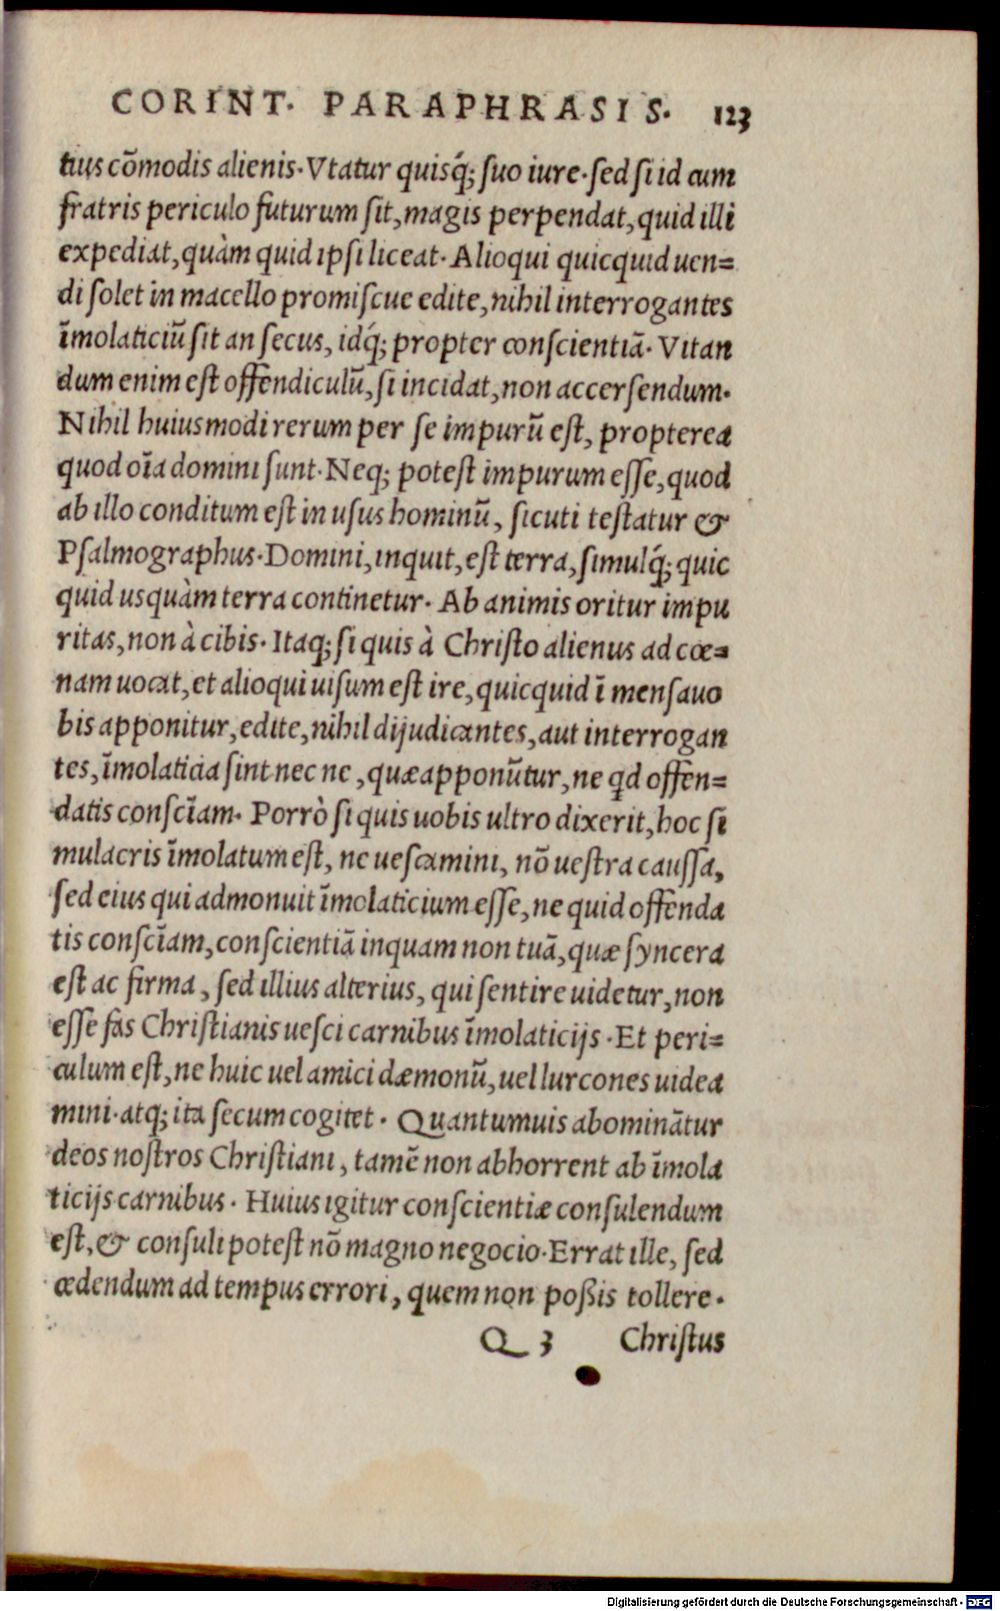 CORINT. PARAPHRASIS. 123
tius cōmodis alienis. Vtatur quisq́; suo iure. sed si id cum
fratris periculo futurum sit, magis perpendat, quid illi
expediat, quàm quid ipsi liceat. Alioqui quicquid uen=
di solet in macello promiscue edite, nihil interrogantes
īmolaticiū sit an secus, idq́; propter conscientiā. Vitan
dum enim est offendiculū, si incidat, non accersendum.
Nihil huiusmodi rerum per se impurū est, propterea
quod oīa domini sunt. Neq; potest impurum esse, quod
ab illo conditum est in usus hominū, sicuti testatur &
Psalmographus. Domini, inquit, est terra, simulq́; quic
quid usquàm terra continetur. Ab animis oritur impu
ritas, non à cibis. Itaq; si quis à Christo alienus ad cœ=
nam uocat, et alioqui uisum est ire, quicquid ī mensa uo
bis apponitur, edite, nihil dijudicantes, aut interrogan
tes, īmolaticia sint nec ne, quæ apponūtur, ne qd offen=
datis conscīam. Porrò si quis uobis ultro dixerit, hoc si
mulacris īmolatum est, ne uescamini, nō uestra caussa,
sed eius qui admonuit īmolaticium esse, ne quid offenda
tis conscīam, conscientiā inquam non tuā, quæ syncera
est ac firma, sed illius alterius, qui sentire uidetur, non
esse fas Christianis uesci carnibus īmolaticijs. Et peri=
culum est, ne huic uel amici dæmonū, uel lurcones uidea
mini. atq; ita secum cogitet. Quantumuis abominātur
deos nostros Christiani, tamē non abhorrent ab īmola
ticijs carnibus. Huius igitur conscientiæ consulendum
est, & consuli potest nō magno negocio. Errat ille, sed
cedendum ad tempus errori, quem non poßis tollere.
Q 3 Christus
Digitalisierung gefördert durch die Deutsche Forschungsgemeinschaft - DFG